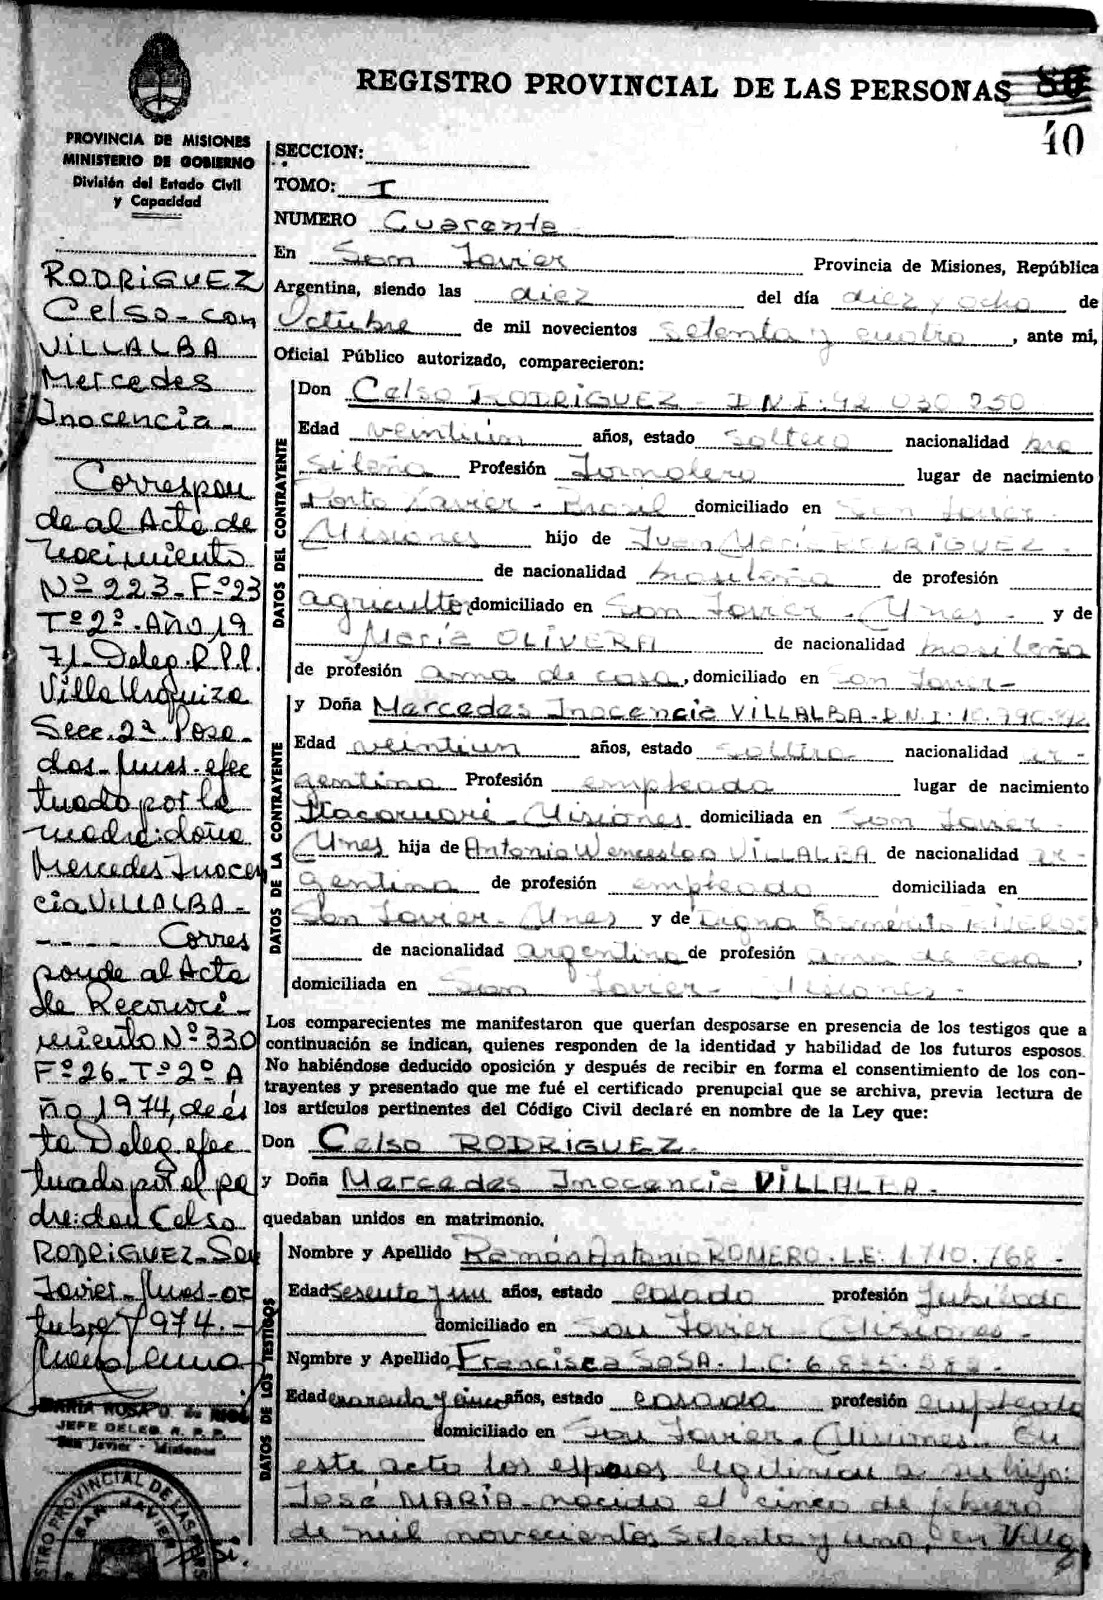 REGISTRO PROVINCIAL DE LAS PERSONAS 80
40
PROVINCIA DE MISIONES
MINISTERIO DE GOBIERNO
División del Estado Civil
y Capacidad
RODRIGUEZ
Celso - con
VILLALBA
Mercedes
Inocencia -
Correspon
de al Acta de
nacimiento
Nº 223 - Fº 23
Tº 2º - Año 19
71 - Deleg. R.P.P.
Villa Urquiza
Secc. 2ª Posa-
das - Mnes - efec
tuado por la
madre: doña
Mercedes Inocen
cia VILLALBA -
- - - - Corres
ponde al Acta
de Reconoci-
miento Nº 330
Fº 26 - Tº 2º A
ño 1974, de és
ta Deleg. efec
tuado por el pa
dre: don Celso
RODRIGUEZ - San
Javier - Mnes - oc
tubre 1974. -
MARIA ROSA D. de RIOS
JEFE DELEG. R. P. P.
San Javier - Misiones
REGISTRO PROVINCIAL DE LAS PERS
SAN JAVIER
SECCION:
TOMO: I
NUMERO Cuarenta
En San Javier Provincia de Misiones, República
Argentina, siendo las diez del día diez y ocho de
Octubre de mil novecientos setenta y cuatro, ante mi,
Oficial Público autorizado, comparecieron:
DATOS DEL CONTRAYENTE
Don Celso RODRIGUEZ - D.N.I: 92 030 250
Edad veintiún años, estado soltero nacionalidad bra
sileña Profesión Jornalero lugar de nacimiento
Porto Xavier - Brasil domiciliado en San Javier -
Misiones hijo de Juan María RODRIGUEZ -
de nacionalidad brasileña de profesión
agricultor domiciliado en San Javier - Mnes - y de
María OLIVERA de nacionalidad brasileña
de profesión ama de casa, domiciliado en San Javier -
DATOS DE LA CONTRAYENTE
y Doña Mercedes Inocencia VILLALBA - D.N.I: 10.790.
Edad veintiun años, estado soltera nacionalidad ar-
gentina Profesión empleada lugar de nacimiento
Itacaruaré - Misiones domiciliada en San Javier -
Mnes hija de Antonio Wenceslao VILLALBA de nacionalidad ar-
gentina de profesión empleado domiciliado en
San Javier - Mnes y de Digna
de nacionalidad argentina de profesión ama de casa,
domiciliada en San Javier - Misiones -
Los comparecientes me manifestaron que querían desposarse en presencia de los testigos que a
continuación se indican, quienes responden de la identidad y habilidad de los futuros esposos.
No habiéndose deducido oposición y después de recibir en forma el consentimiento de los con-
trayentes y presentado que me fué el certificado prenupcial que se archiva, previa lectura de
los artículos pertinentes del Código Civil declaré en nombre de la Ley que:
Don Celso RODRIGUEZ.
y Doña Mercedes Inocencia VILLALBA -
quedaban unidos en matrimonio.
DATOS DE LOS TESTIGOS
Nombre y Apellido Ramón Antonio ROMERO - L.E: 1710.768 -
Edad sesenta y un años, estado casado profesión Jubilado
domiciliado en San Javier Misiones -
Nombre y Apellido Francisca SOSA - L.C: 6.
Edad cuarenta y cinco años, estado casada profesión empleada
domiciliado en San Javier - Misiones - En
este acto los esposos legitiman a su hijo:
José MARIA - nacido el cinco de febrero
de mil novecientos setenta y uno, en Villa